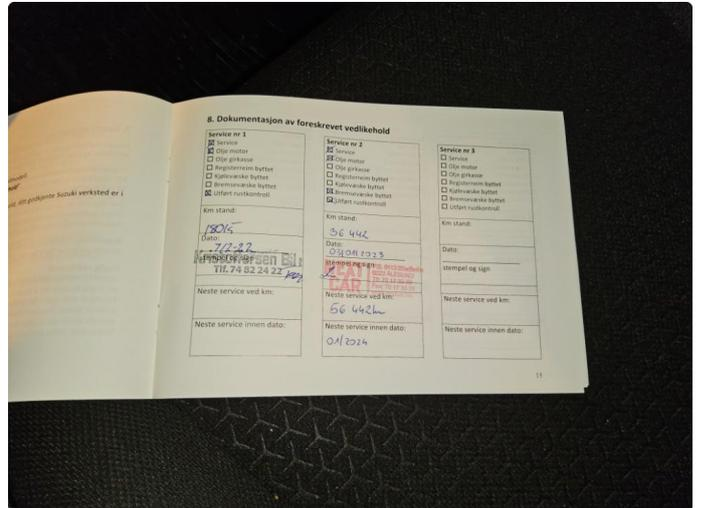 8. Dokumentasjon av foreskrevet vedlikehold
Service nr 1
Service
Olje motor
Olje girkasse
Registerreim byttet
Kjølevæske byttet
Bremsevæske byttet
Utført rustkontroll
Km stand:
18015
Dato:
7/2-22
stempel og sign
Kristoffersen Bil
Tlf. 74 82 24 22
Neste service ved km:
Neste service innen dato:
Service nr 2
Service
Olje motor
Olje girkasse
Registerreim byttet
Kjølevæske byttet
Bremsevæske byttet
Utført rustkontroll
Km stand:
36 442
Dato:
03/01/2023
stempel og sign
CAR
Neste service ved km:
56 442km
Neste service innen dato:
01/2024
Service nr 3
Service
Olje motor
Olje girkasse
Registerreim byttet
Kjølevæske byttet
Bremsevæske byttet
Utført rustkontroll
Km stand:
Dato:
stempel og sign
Neste service ved km:
Neste service innen dato:
godkjente Suzuki verksted er i